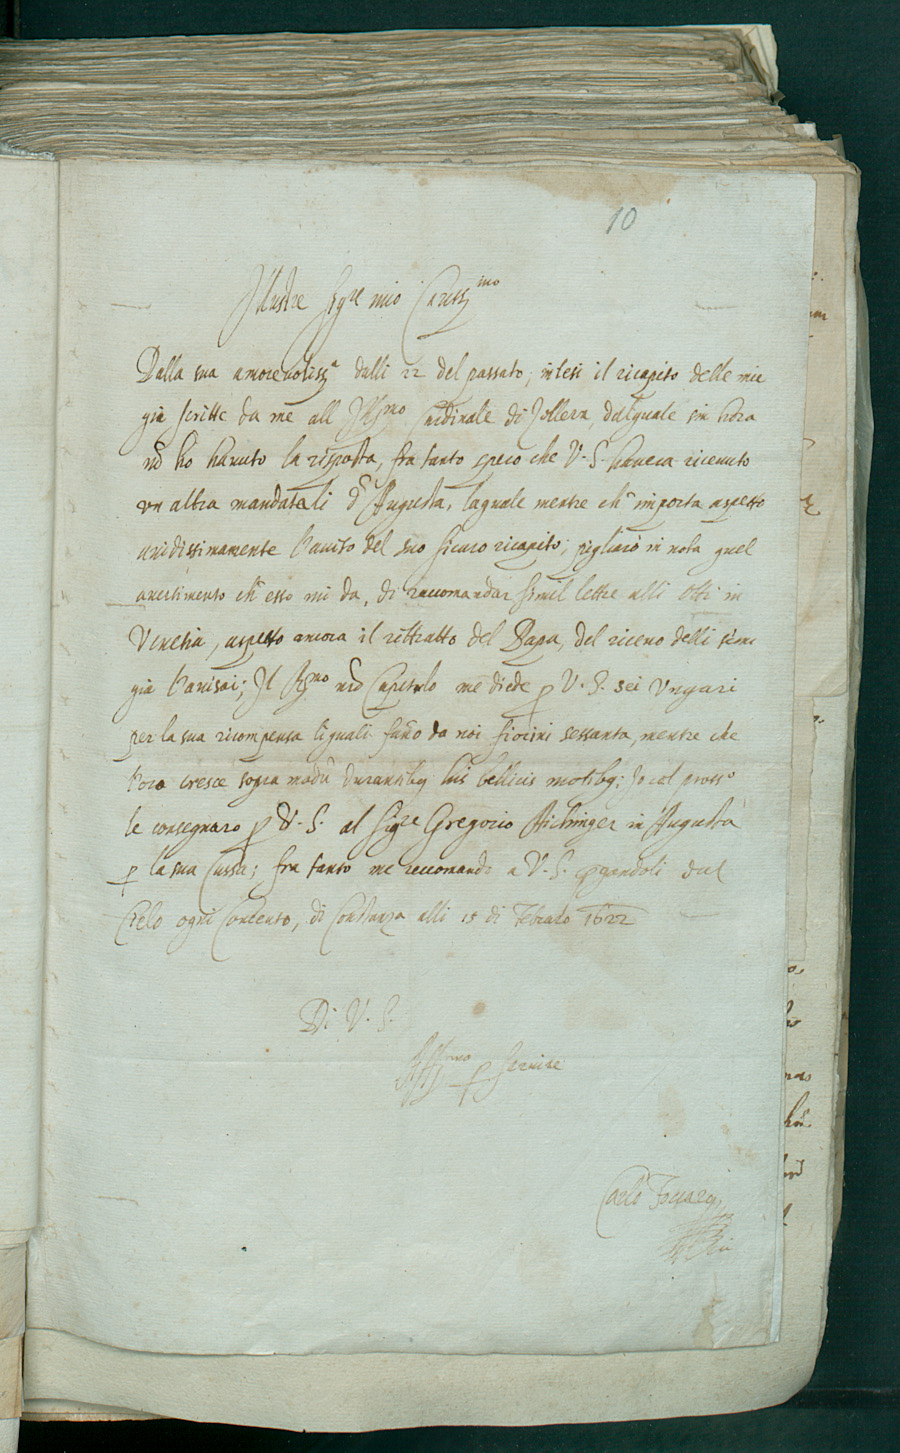 10
Illustre Sigre mio Cariss.mo
Dalla sua amorevoliss.a dalli 22 del passato, intesi il ricapito delle mie
gia scritte da me all Ill.mo Cardinale di Zollern, dalquale sin hora
nõ ho havuto la risposta, fra tanto spero che V. S. havera ricevuto
un altra mandatali d' Augusta, laquale mentre ch' importa aspetto
avidissimamente l'aviso del suo sicuro ricapito; pigliarò in nota quel
avertimento ch' esso mi da, di raccomandar simil lettre alli Otti in
Venetia, aspetto ancora il rittratto del Papa, del ricevo delli
gia l'avisai; Il R.mo nrõ Capitolo me diede p V. S. sei Ungari
per la sua ricompensa liquali fano da noi fiorini sessanta, mentre che
l'oro cresce sopra modũ durantibq his bellicis motibq; Io col pross.o
le consegnaro p V. S. al Sigre Gregorio Aichinger in Augusta
p la sua Cussa; fra tanto me raccomando a V. S. pgandoli dal
Cielo ogni Contento, di Constanza alli 15 di Febraro 1622
Di V. S.
Aff.mo p servire
Carlo